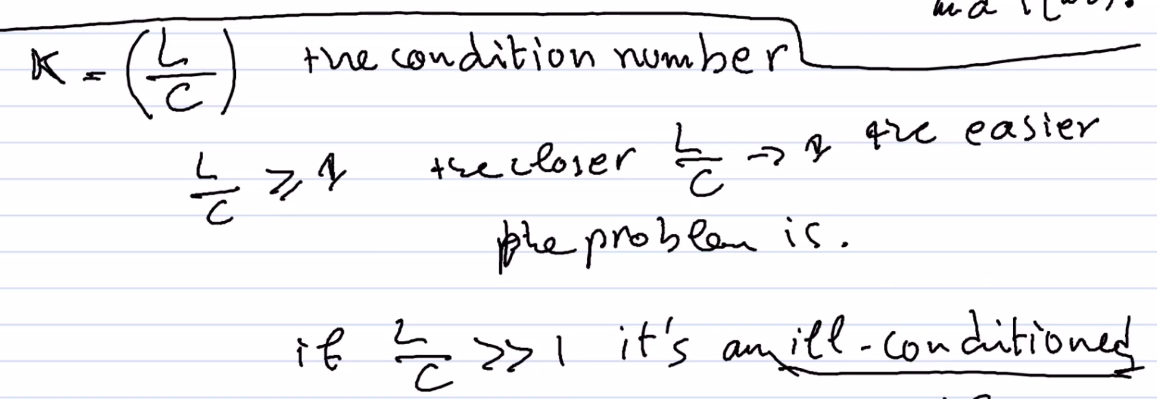 and
K = (L/C) the condition number
L/C ≥ 1 the closer L/C → 1 the easier
the problem is.
if L/C >> 1 it's an ill-conditioned